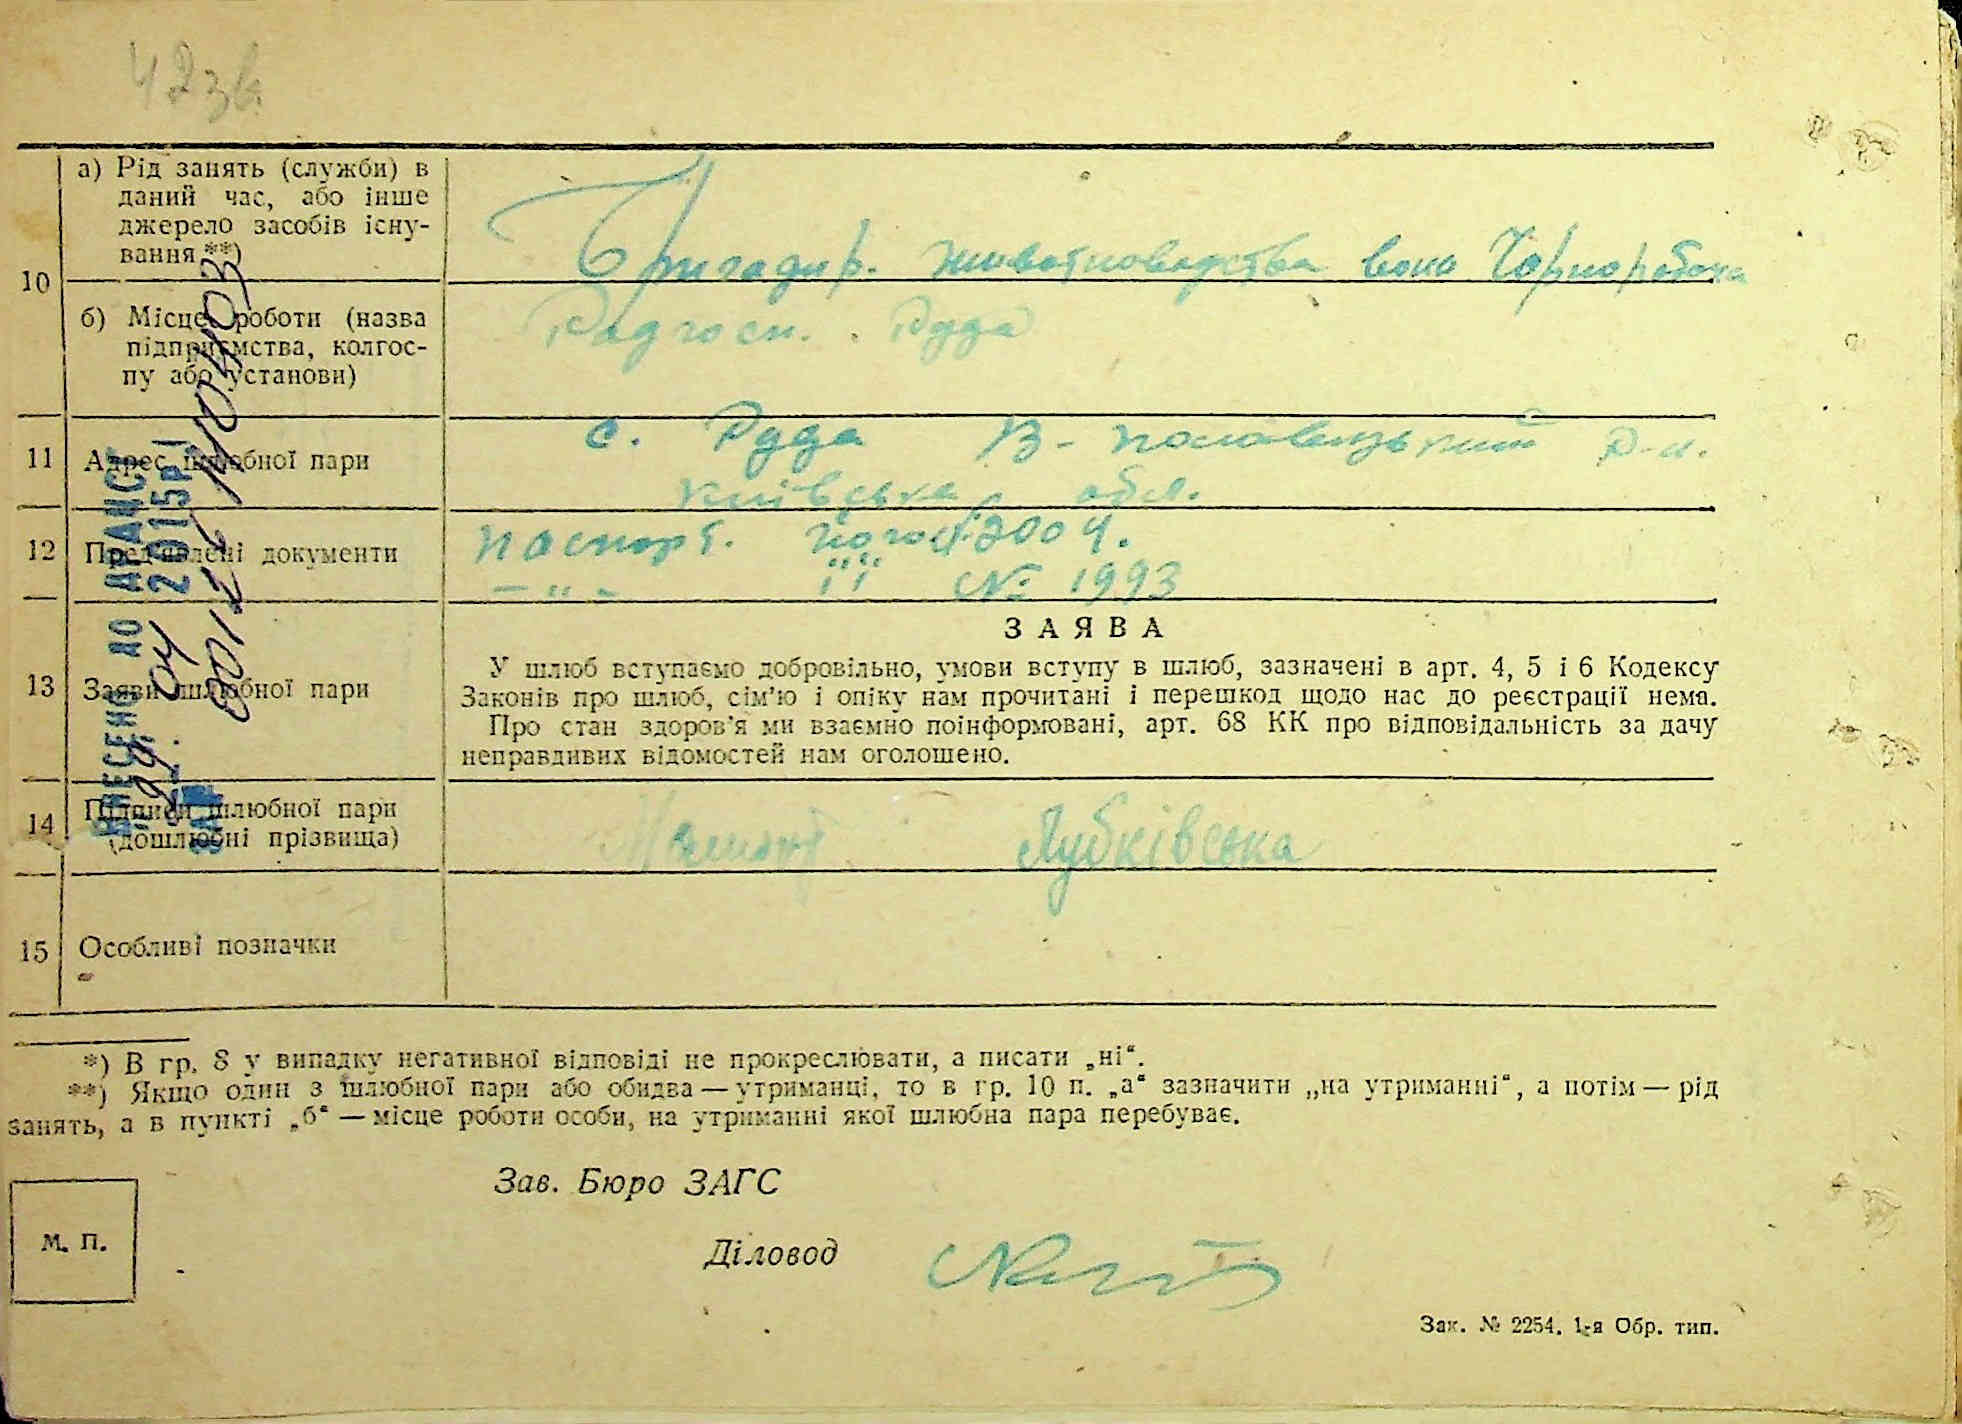 42зв.
10
а) Рід занять (служби) в
даний час, або інше
джерело засобів існу-
вання **)
Бригадир. животноводства вона Чорноробоча
б) Місце роботи (назва
підприємства, колгос-
пу або установи)
Радгосп. Руда
11
Адрес шлюбної пари
с. Руда В- р-н.
київська обл.
12
Пред'явлені документи
паспорт. його 2004.
— „ - „ № 1993
13
Заяви шлюбної пари
ЗАЯВА
У шлюб вступаємо добровільно, умови вступу в шлюб, зазначені в арт. 4, 5 і 6 Кодексу
Законів про шлюб, сім'ю і опіку нам прочитані і перешкод щодо нас до реєстрації нема.
Про стан здоров'я ми взаємно поінформовані, арт. 68 КК про відповідальність за дачу
неправдивих відомостей нам оголошено.
14
Підписи шлюбної пари
(дошлюбні прізвища)
Лубківська
15
Особливі позначки
ВНЕСЕНО ДО ДРАЦСГ
"29" 04 2015р.
*) В гр. 8 у випадку негативної відповіді не прокреслювати, а писати „ні“.
**) Якщо один з шлюбної пари або обидва — утриманці, то в гр. 10 п. „а“ зазначити „на утриманні“, а потім — рід
занять, а в пункті „б“ — місце роботи особи, на утриманні якої шлюбна пара перебуває.
Зав. Бюро ЗАГС
М. П.
Діловод
Зак. № 2254. 1-я Обр. тип.